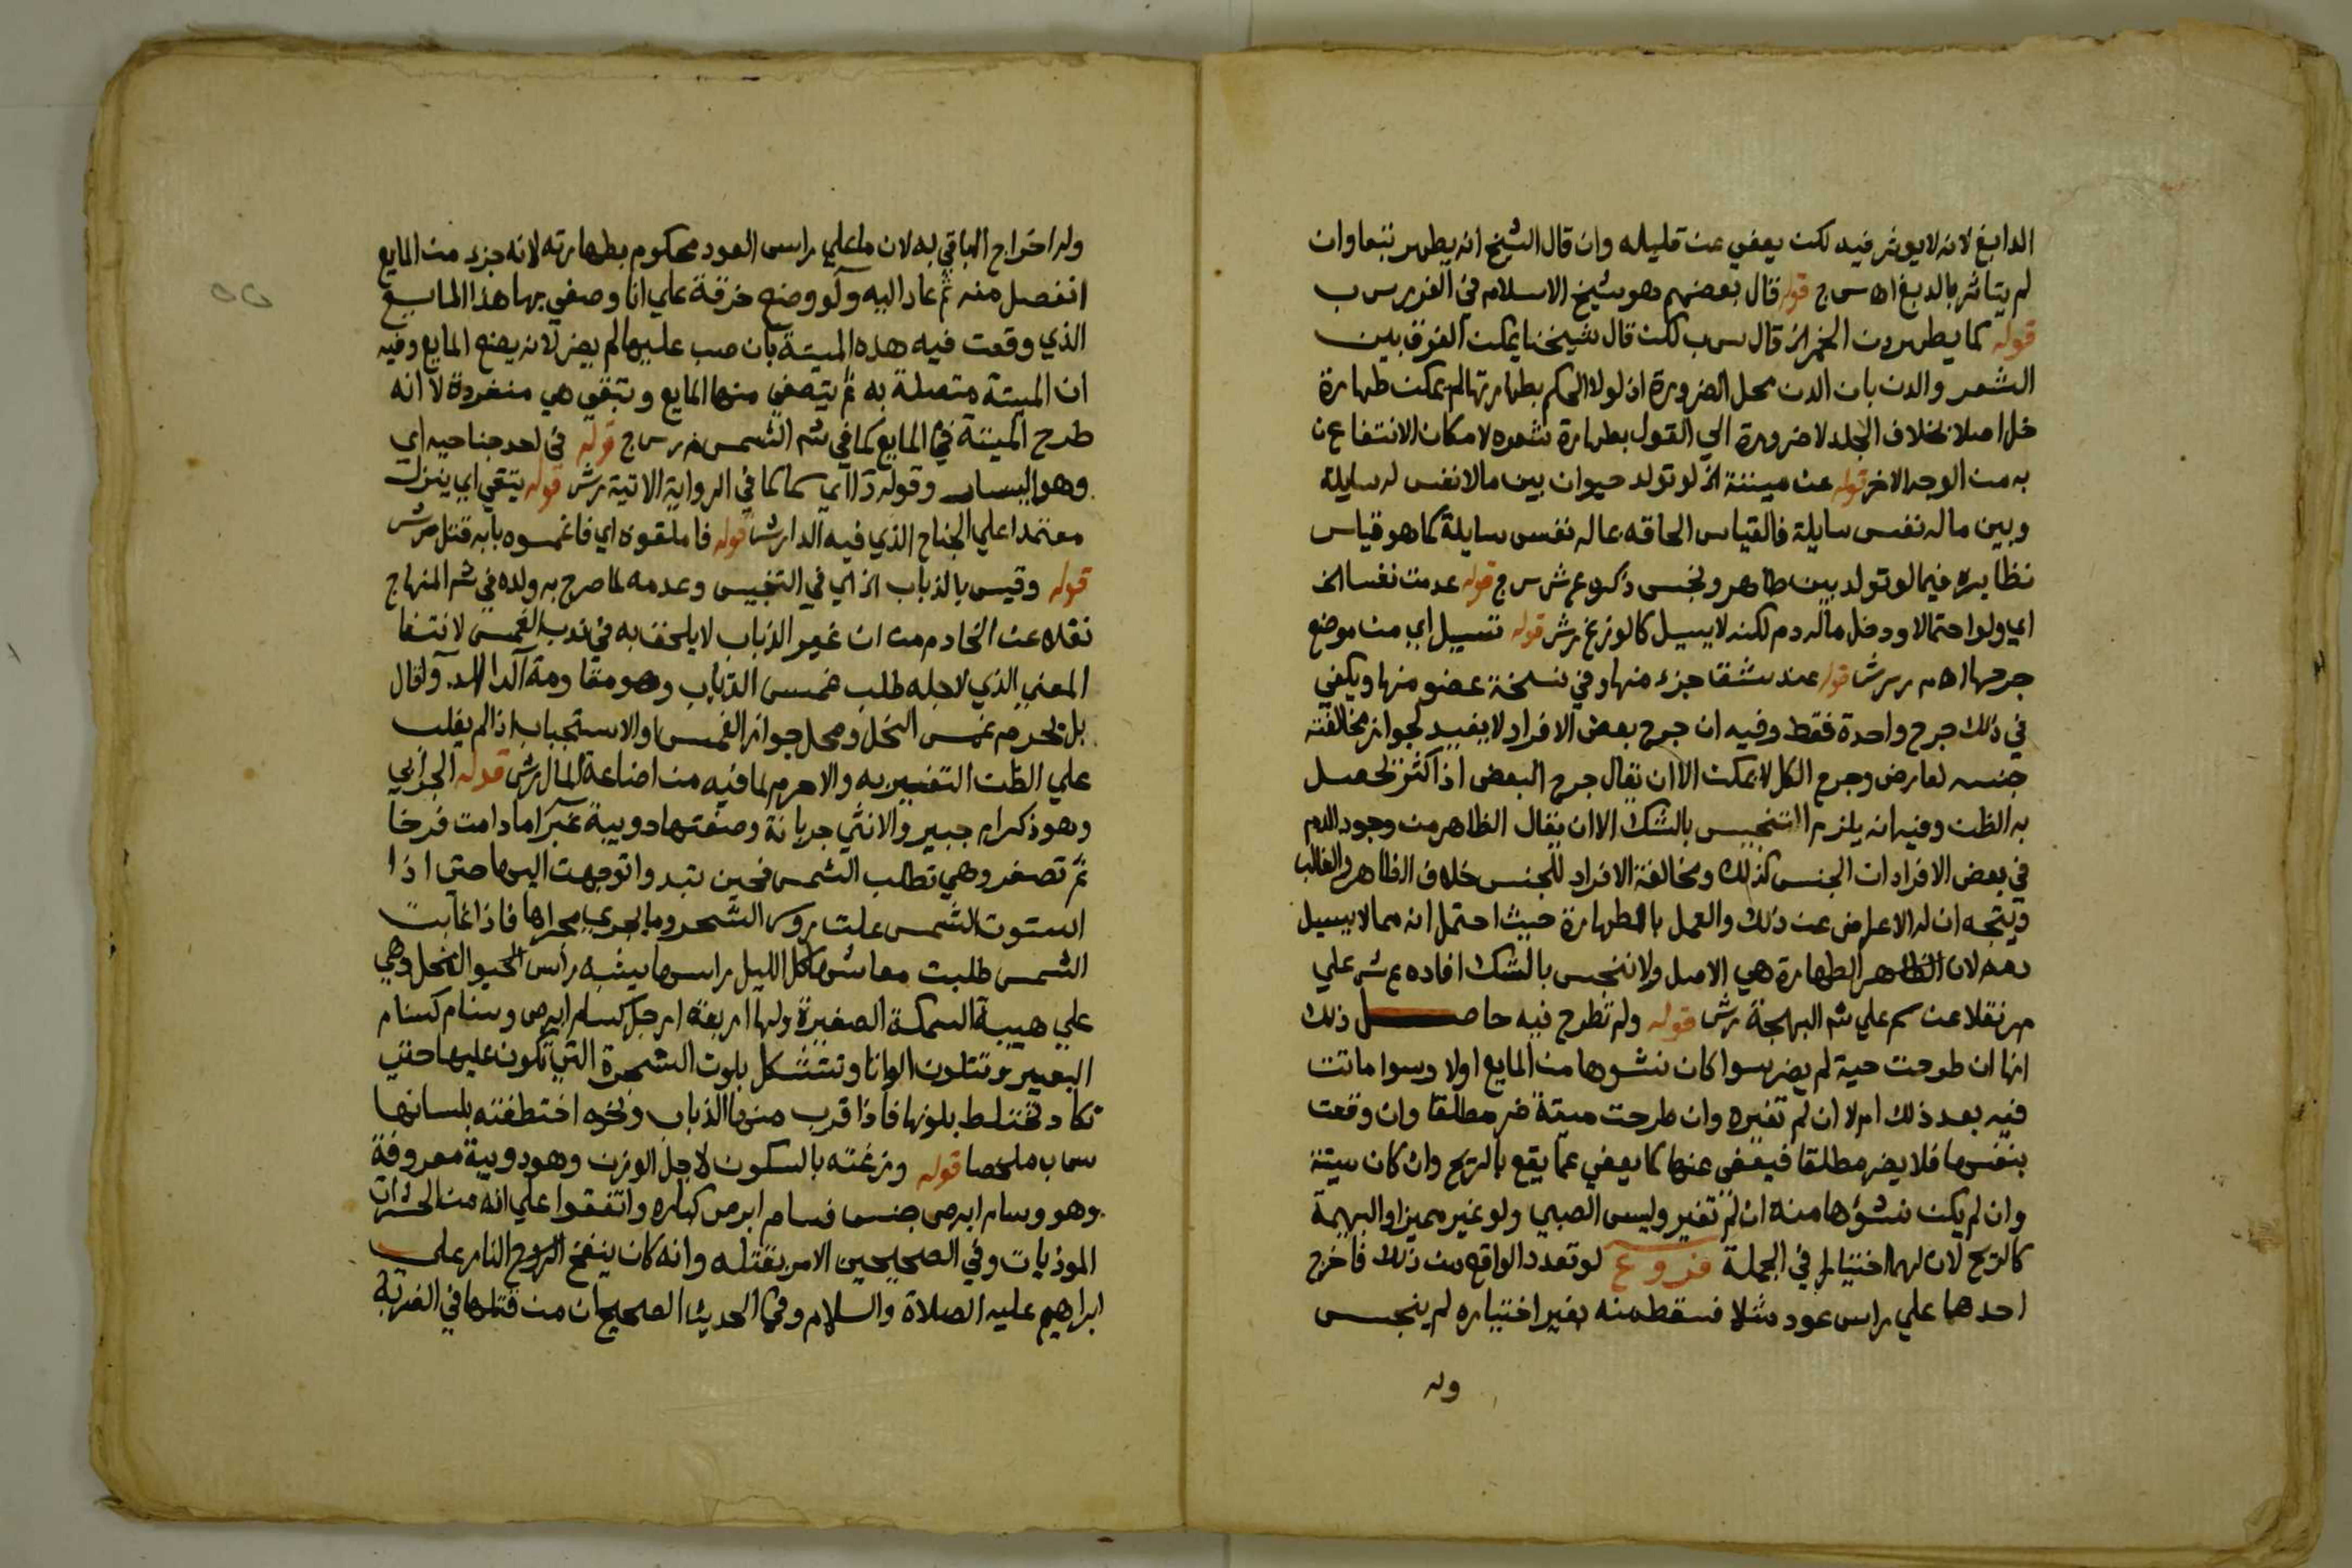 الدابغ لانه لا يوثر فيه لكن يعفي عن قليله وان قال الشيخ انه يطهر تبعا وان
لم يتاثر بالدبغ اه س ج قوله قال بعضهم هو شيخ الاسلام في الغرر س ب
قوله كما يطهر دن الخمر الخ قال س ب لكن قال شيخنا يمكن الفرق بين
الشعر والدن بان الدن محل الضرورة اذ لولا الحكم بطهارتها لم يمكن طهارة
خل اصلا بخلاف الجلد لا ضرورة الي القول بطهارة شعره لامكان الانتفاع
به من الوجه الاخر قوله عن ميتة الخ لو تولد حيوان بين ما لا نفس له سايلة
وبين ما له نفس سايلة فالقياس الحاقه بما له نفس سايلة كما هو قياس
نظايره فيما لو تولد بين طاهر ونجس ذكره ع ش س ج قوله عدمت نفسا الخ
اي ولو احتمالا ودخل ماله دم لكنه لا يسيل كالوزغ برش قوله تسيل اي من موضع
جرحها اه م ر برش قوله عند شق جزء منها وفي نسخة عضو منها ويكفي
في ذلك جرح واحدة فقط وفيه ان جرح بعض الافراد لا يفيد لجواز مخالفة
جنسه لعارض وجرح الكل لا يمكن الا ان يقال جرح البعض اذا كثر تحصل
به الظن وفيه انه يلزم التنجيس بالشك الا ان يقال الظاهر من وجود الدم
في بعض الافراد ان الجنس كذلك ومخالفة الافراد للجنس خلاف الظاهر والغالب
ويتجه ان له الاعراض عن ذلك والعمل بالطهارة حيث احتمل انه مما لا يسيل
دمه لان الطهارة هي الاصل ولا ننجس بالشك افاده ع ش علي
م ر نقلا عن سم علي شم البهجة برش قوله ولم تطرح فيه حاصل ذلك
انها ان طرحت حية لم يضر سوا كان نشوها من المايع اولا وسوا ماتت
فيه بعد ذلك ام لا ان لم تغيره وان طرحت ميتة ضر مطلقا وان وقعت
بنفسها فلا يضر مطلقا فيعفي عنها كما يعفي عما يقع بالريح وان كان ميتة
وان لم يكن نشؤها منه ان لم تغير وليس الصبي ولو غير مميز او البهيمة
كالريح لان لهما اختيارا في الجملة فروع لو تعدد الواقع من ذلك فاخرج
احدها علي راس عود مثلا فسقط منه بغير اختياره لم ينجس
وله
وله اخراج الباقي به لان ما علي راس العود محكوم بطهارته لانه جزء من المايع
انفصل منه ثم عاد اليه ولو وضع خرقة علي انا وصفي بها هذا المايع
الذي وقعت فيه هذه الميتة بان صب عليها لم يضر لانه يضع المايع وفيه
ان الميتة متصلة به ثم يتصفي منها المايع وتبقي هي منفردة لا انه
طرح الميتة في المايع كما في شم الشمس م ر س ج قوله في احد جناحيه اي
وهو اليسار وقوله دا اي سما كما في الرواية الاتية برش قوله يتقي اي ينزل
معتمدا علي الجناح الذي فيه الدا برش قوله فاملقوه اي فاغمسوه بابه قتل برش
قوله وقيس بالذباب الخ اي في التنجيس وعدمه لما صرح به ولده في شم المنهاج
نقله عن الخادم من ان غير الذباب لا يلحق به في ندب الغمس لانتفا
المعني الذي لاجله طلب غمس الذباب وهو مقاومة الدا للدوا قال
بل يحرم غمس النحل ومحل جواز الغمس او الاستحباب اذا لم يغلب
علي الظن التغيير به والا حرم لما فيه من اضاعة المال برش قوله الحرابي
وهو ذكر ام حبين والانثي حرباة وصفتها دويبة غبرا ما دامت فرخا
ثم تصفر وهي تطلب الشمس فحين تبدوا توجهت اليها حتي اذا
استوت الشمس علت روس الشجر وما يجري مجراها فاذا غابت
الشمس طلبت معاشها كل الليل راسها يشبه راس العجل وهي
علي هيية السمكة الصغيرة ولها اربعة ارجل كسام ابرص وسنام كسنام
البعير وتتلون الوانا وتتشكل بلون الشجرة التي تكون عليها حتي
تكاد تختلط بلونها فاذا قرب منها الذباب ونحوه اختطفته بلسانها
س ب ملخصا قوله وزغته بالسكون لاجل الوزن وهو دويبة معروفة
وهو وسام ابرص جنس فسام ابرص كباره واتفقوا علي انه من الحشرات
الموذيات وفي الصحيحين الامر بقتله وانه كان ينفخ النار علي
ابراهيم عليه الصلاة والسلام وفي الحديث الصحيح ان من قتلها في الضربة